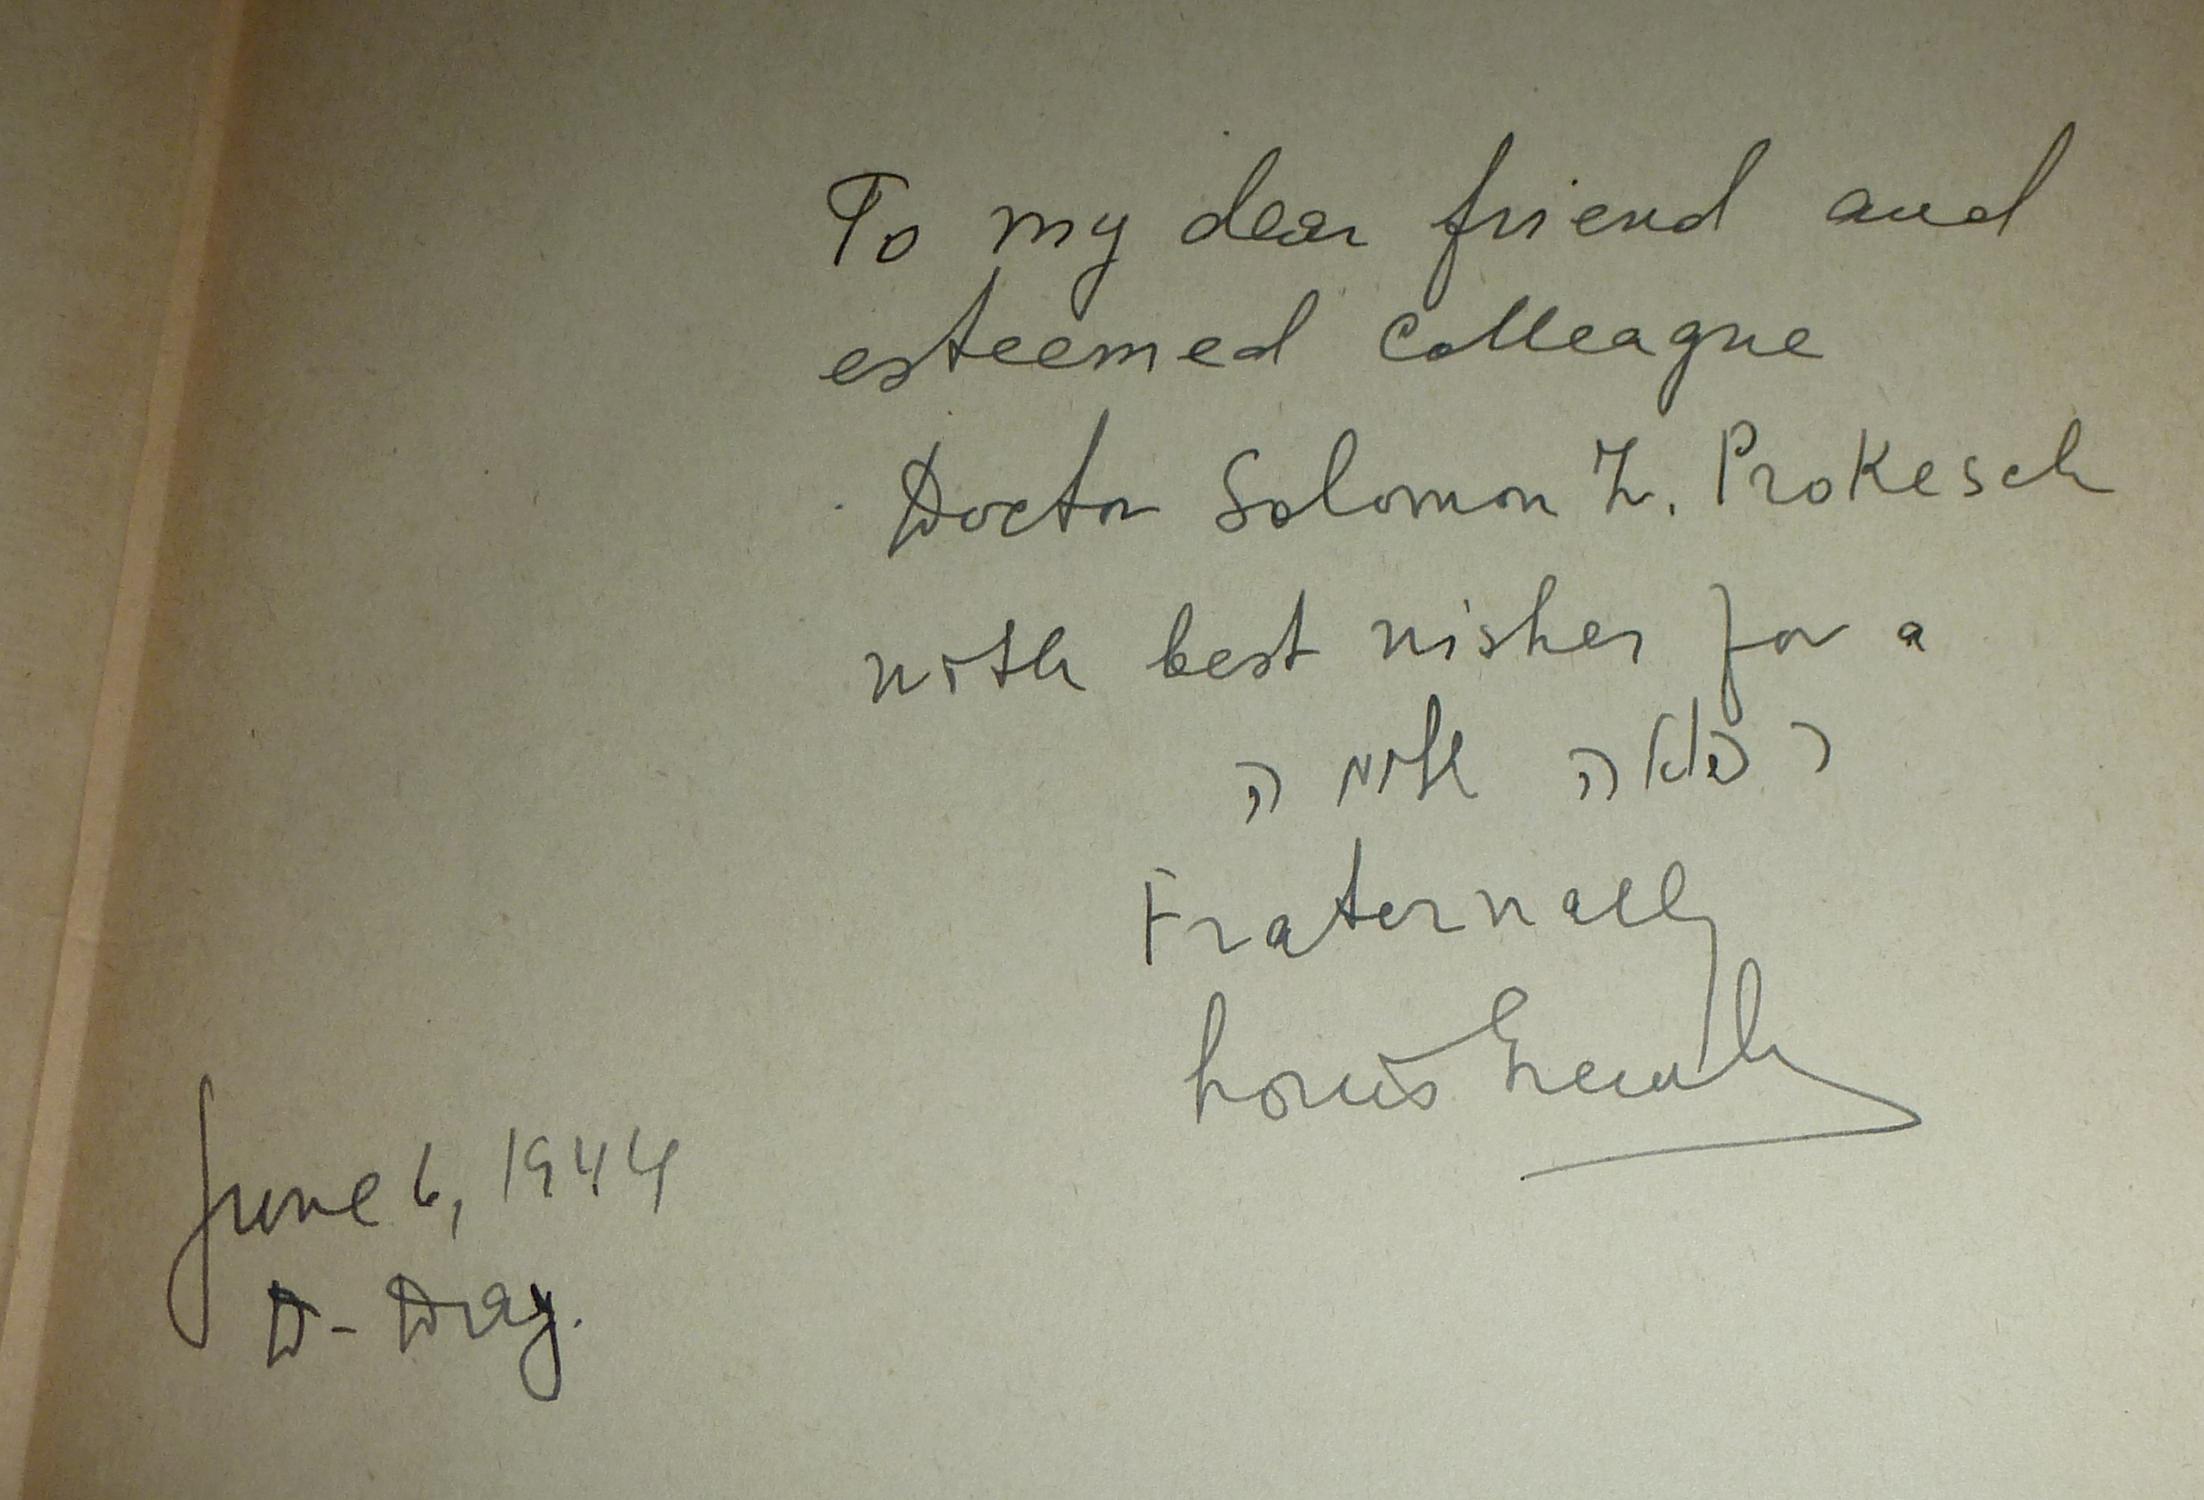 To my dear friend and
esteemed Colleague
Doctor Solomon Z. Prokesch
with best wishes for a
רפואה שלימה
Fraternally
Louis
June 6, 1944
D-Day.